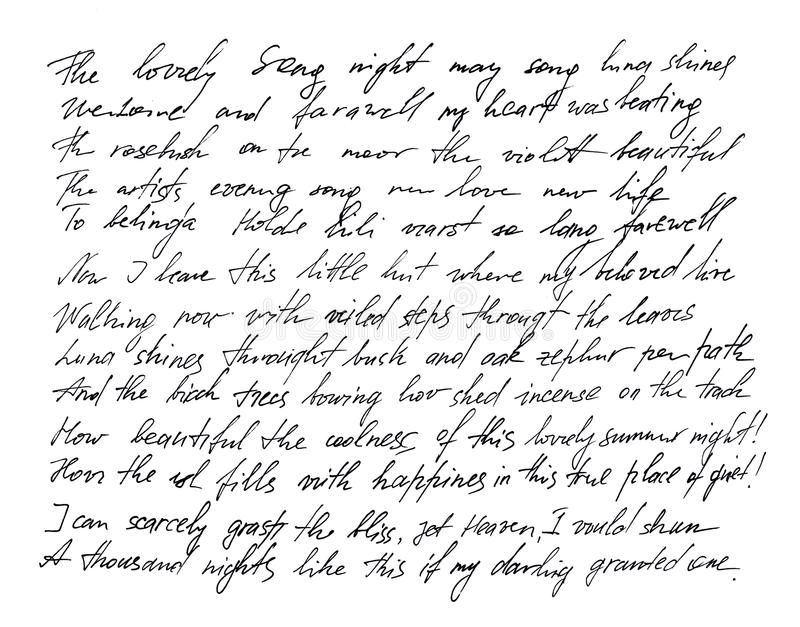 The lovely song night may song luna shines
Welcome and farawell my heart was beating
Th rosebush on the moor the violett beautiful
The artists evening song new love new life
To belinda Holde Lili warst so long farewell
Now I leave this little hut where my beloved live
Walking now with veiled steps througt the leaves
Luna shines throught bush and oak zephur per path
And the birch trees bowing how shed incense on the track
How beautiful the coolness of this lovely summer night!
How the fills with happines in this true place of quiet!
I can scarcely grasp the bliss, yet Heaven, I would shun
A thousand nights like this if my darling granted one.
dreamstime